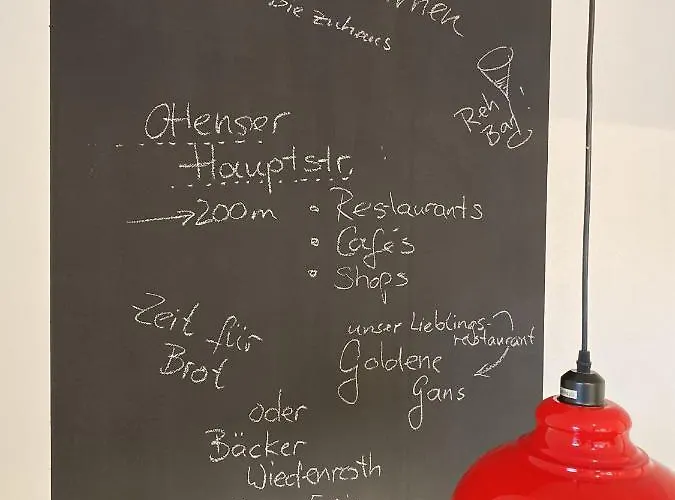 Die Zuhaus
Reh
Bar
Ottenser
Hauptstr.
→ 200m
• Restaurants
• Cafés
• Shops
Zeit für
Brot
unser Lieblings-
restaurant
Goldene
Gans
oder
Bäcker
Wiedenroth